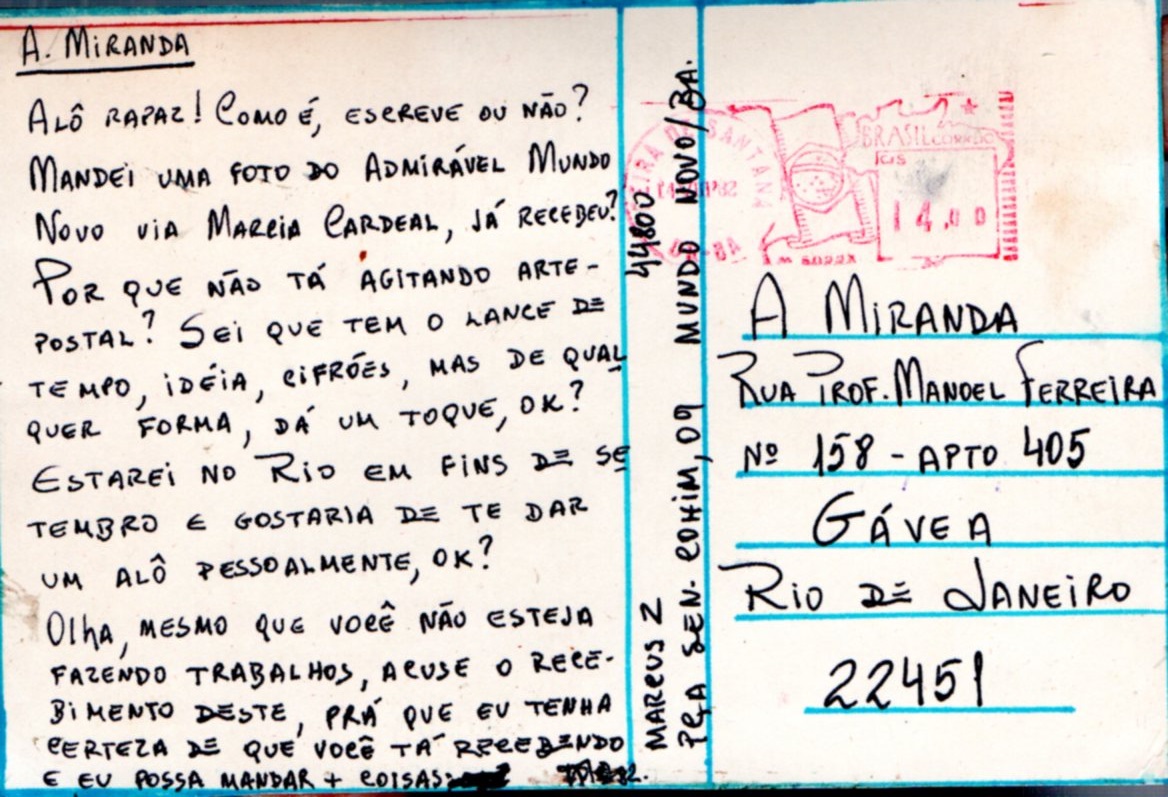 A. MIRANDA
ALÔ RAPAZ! COMO É, ESCREVE OU NÃO?
MANDEI UMA FOTO DO ADMIRÁVEL MUNDO
NOVO VIA MARCIA CARDEAL, JÁ RECEBEU?
POR QUE NÃO TÁ AGITANDO ARTE-
POSTAL? SEI QUE TEM O LANCE DE
TEMPO, IDÉIA, CIFRÕES, MAS DE QUAL
QUER FORMA, DÁ UM TOQUE, OK?
ESTAREI NO RIO EM FINS DE SE
TEMBRO E GOSTARIA DE TE DAR
UM ALÔ PESSOALMENTE, OK?
OlhA, MESMO QUE VOCÊ NÃO ESTEJA
FAZENDO TRABALHOS, ACUSE O RECE-
BIMENTO DESTE, PRÁ QUE EU TENHA
CERTEZA DE QUE VOCÊ TÁ RECEBENDO
E EU POSSA MANDAR + COISAS
MARCUS Z 44800
PÇA SEN. COHIM, 09 MUNDO NOVO/BA.
EIRA DE SANTANA
BRASIL CORREIO
14,00
A MIRANDA
RUA PROF. MANOEL FERREIRA
Nº 158 - APTO 405
GÁVEA
RIO DE JANEIRO
22451